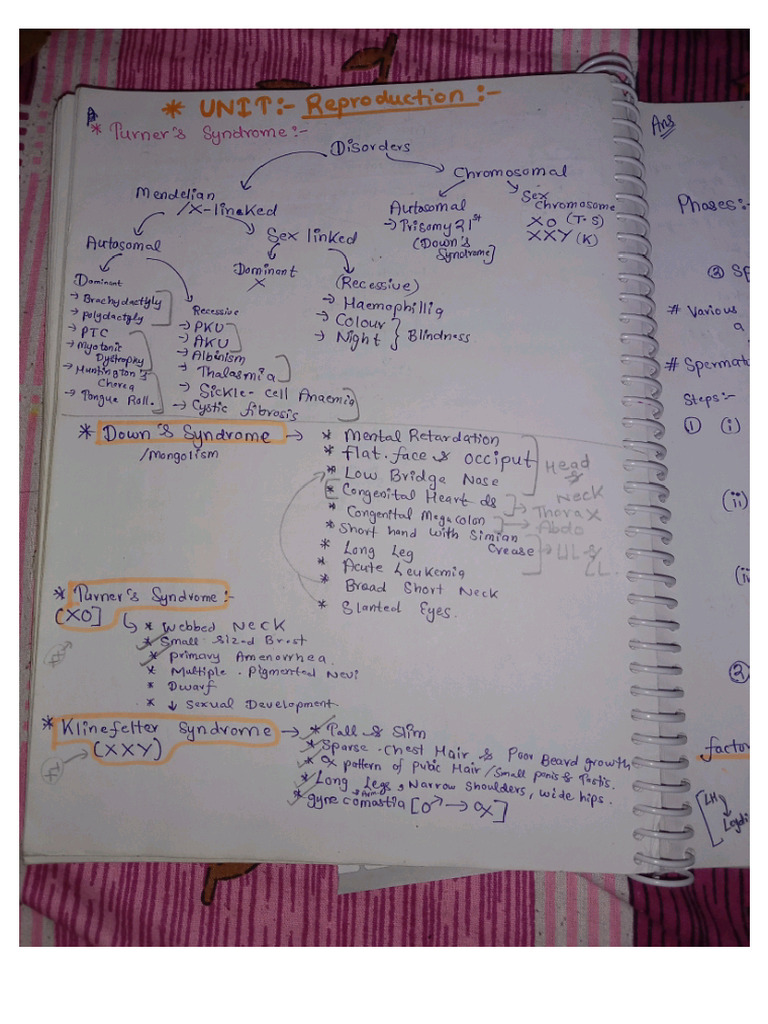 * UNIT:- Reproduction :-
* Turner's Syndrome:-
Disorders
Mendelian
/X-lineked
Chromosomal
Autosomal
→ Trisomy 21st
(Down's
Syndrome]
Sex
Chromosome
XO (T.S)
XXY (K)
Autosomal
Sex linked
Dominant
X
(Recessive)
→ Haemophillia
→ Colour
→ Night } Blindness
Dominant
→ Brachydactyly
→ polydactyly
→ PTC
→ Myotonic
Dystrophy
→ Huntington's
Chorea
→ Tongue Roll.
Recessive
→ PKU
→ AKU
→ Albinism
→ Thalasmia
→ Sickle-cell Anaemia
→ Cystic fibrosis
* Down's Syndrome →
/Mongolism
* Mental Retardation
* flat face & occiput
* Low Bridge Nose
* Congenital Heart ds
* Congenital Megacolon
* Short hand with Simian
Crease
* Long Leg
* Acute Leukemia
* Broad Short Neck
* Slanted Eyes.
Head
&
Neck
→ Thorax
→ Abdo
→ UL &
LL
* Turner's Syndrome:-
(XO]
* Webbed Neck
* Small Sized Brest
* primary Amenorrhea.
* Multiple Pigmented Nevi
* Dwarf
* ↓ Sexual Development
* Klinefelter Syndrome →
(XXY)
* Tall & Slim
* Sparse Chest Hair & Poor Beard growth
* ♀ pattern of pubic Hair/Small penis & Testis.
* Long Legs, Narrow Shoulders, wide hips.
& Arms
* gyne comastia [♂ → ♀]
Ans
Phases:-
# Various
a
# Spermato
Steps:-
① (i)
(ii)
②
factor
LH